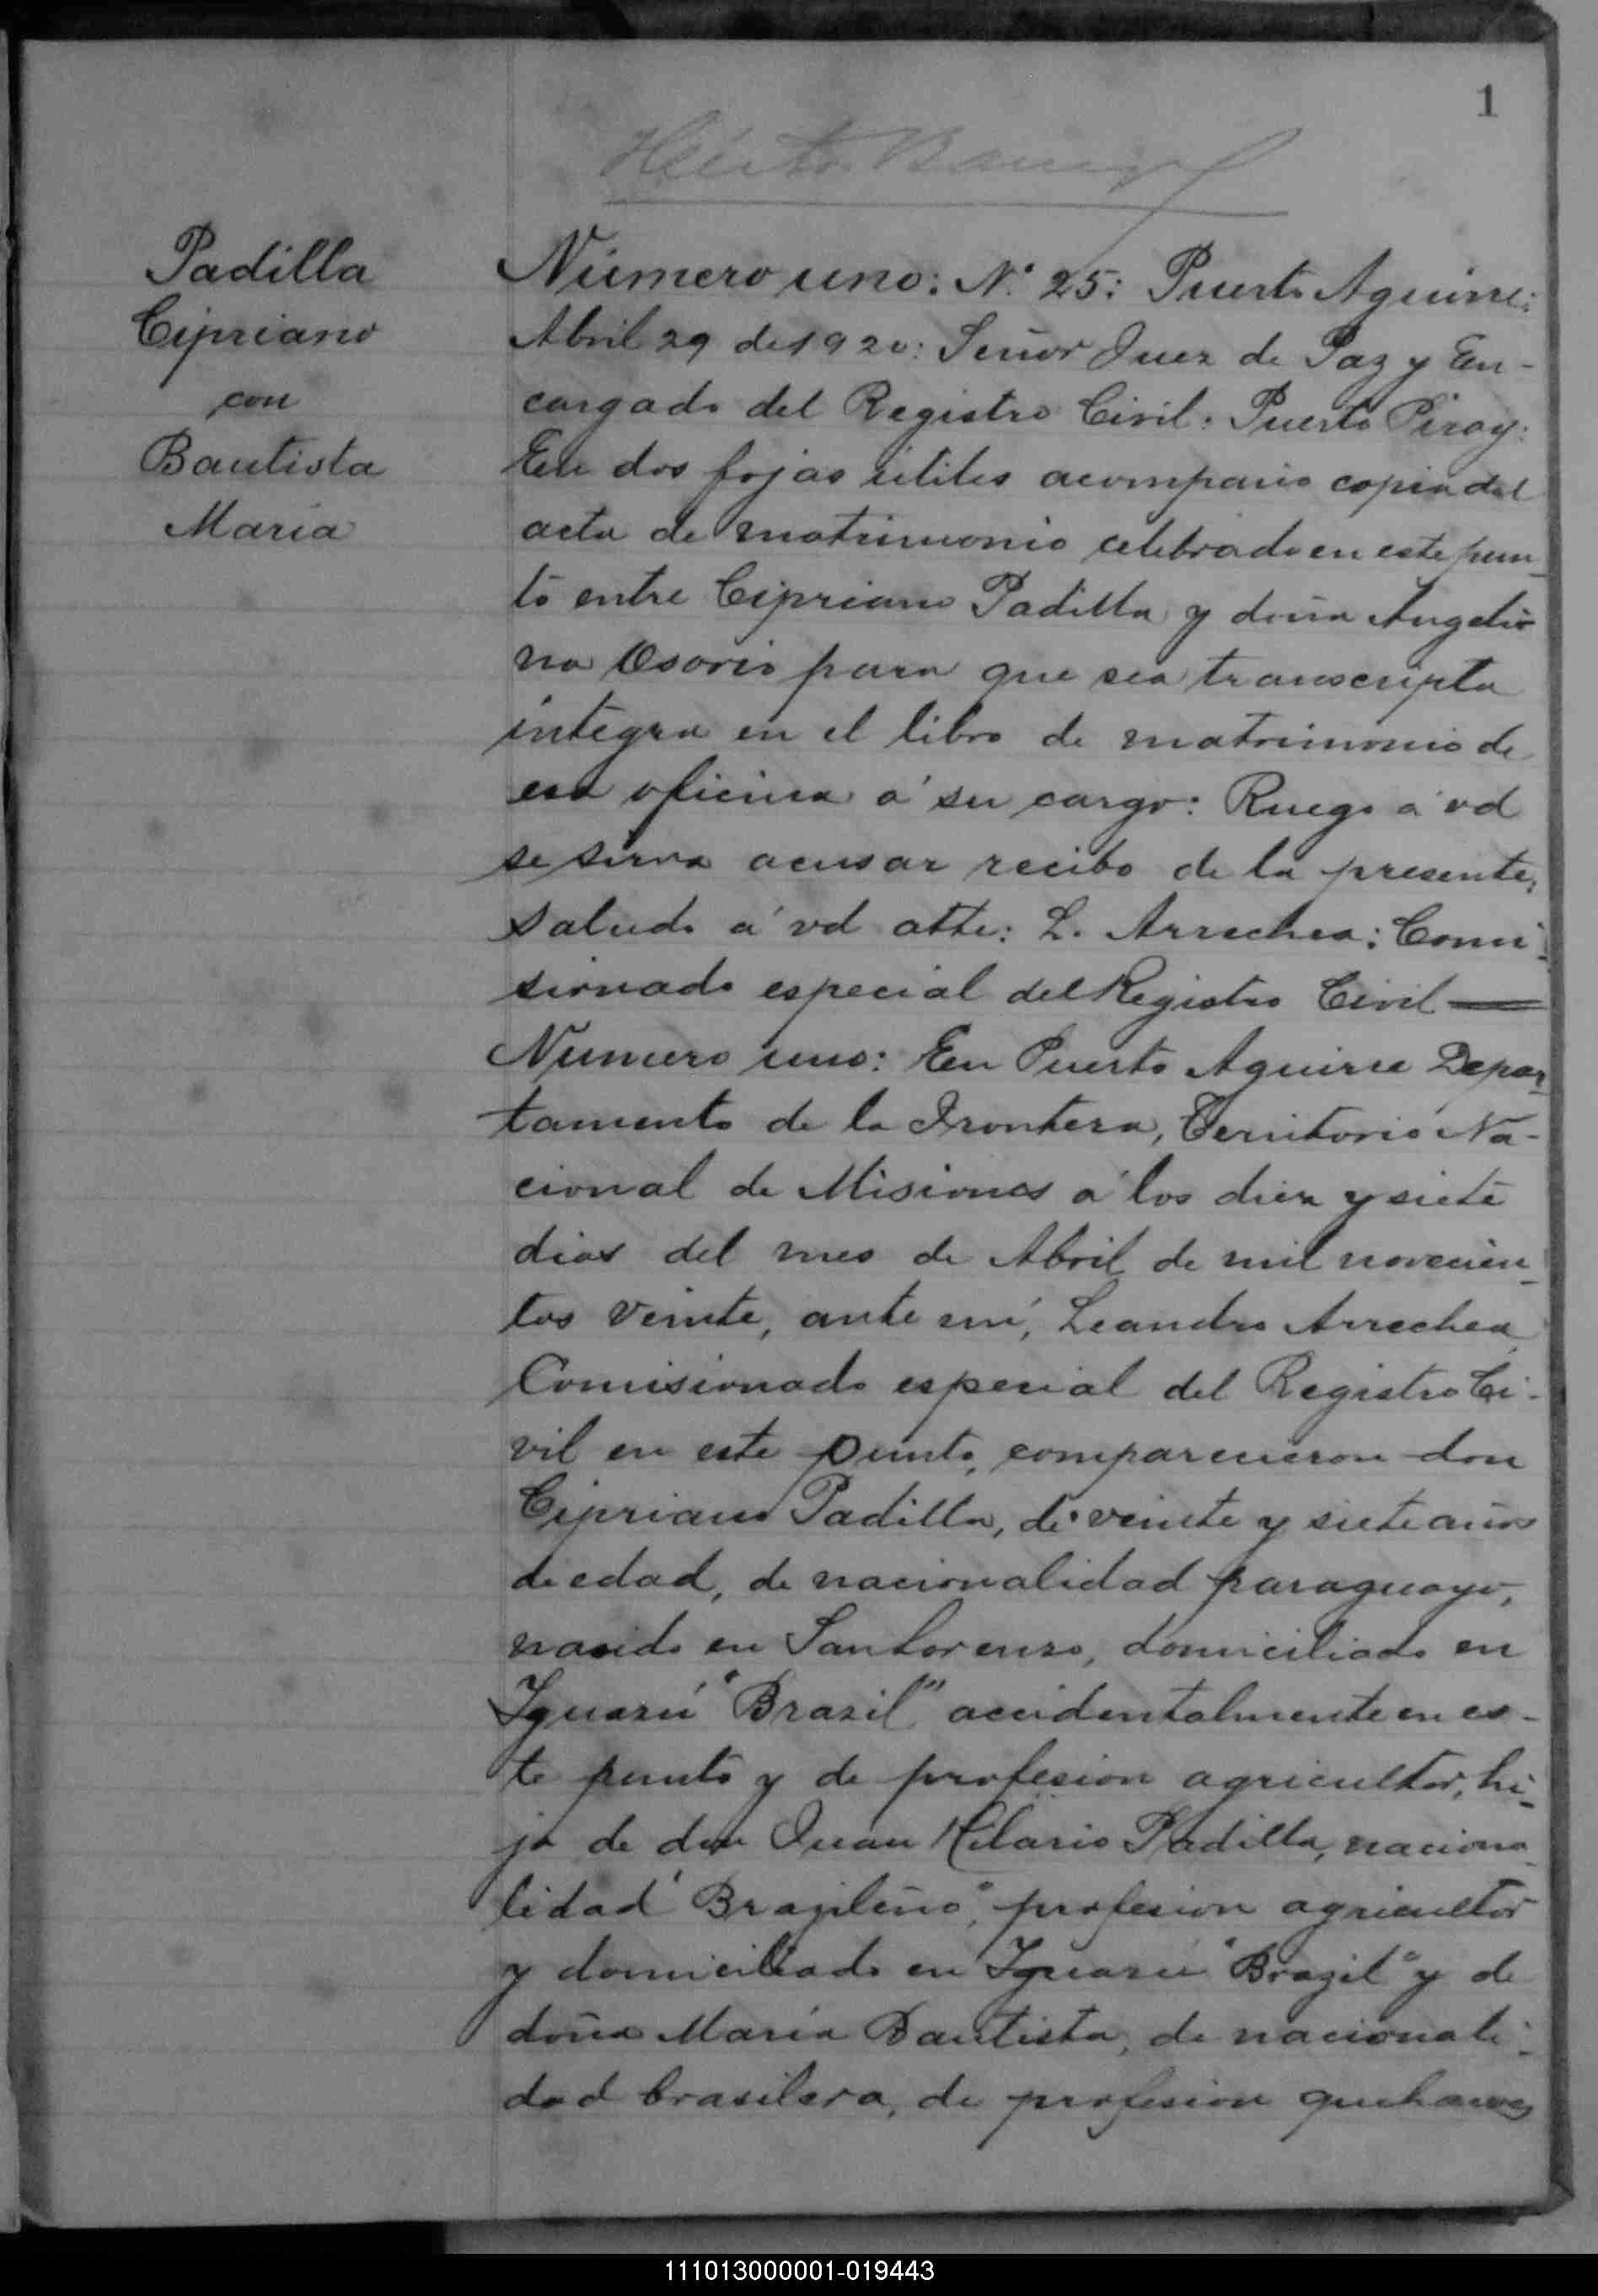 1
Padilla
Cipriano
con
Bautista
Maria
Número uno: N.º 25: Puerto Aguirre:
Abril 29 de 1920: Señor Juez de Paz y En-
cargado del Registro Civil: Puerto Piray:
En dos fojas útiles acompaño copia del
acta de matrimonio celebrado en este pun-
to entre Cipriano Padilla y doña Angeli-
na Osorio para que sea transcripta
integra en el libro de matrimonio de
esa oficina á su cargo: Ruego á vd
se sirva acusar recibo de la presente,
saludo á vd atte: L. Arrechea: Comi-
sionado especial del Registro Civil
Numero uno: En Puerto Aguirre Depar-
tamento de la Frontera, Territorio Na-
cional de Misiones á los diez y siete
dias del mes de Abril de mil novecien-
tos veinte, ante mí, Leandro Arrechea
Comisionado especial del Registro Ci-
vil en este punto, comparecieron don
Cipriano Padilla, de veinte y siete años
de edad, de nacionalidad paraguayo,
nacido en San Lorenzo, domiciliado en
Iguazú "Brazil" accidentalmente en es-
te punto y de profesion agricultor, hi-
jo de don Juan Hilario Padilla, naciona-
lidad "Brazileño", profesion agricultor
y domiciliado en Iguazú "Brazil" y de
doña María Bautista, de nacionali-
dad brasilera, de profesion quehaceres
111013000001-019443